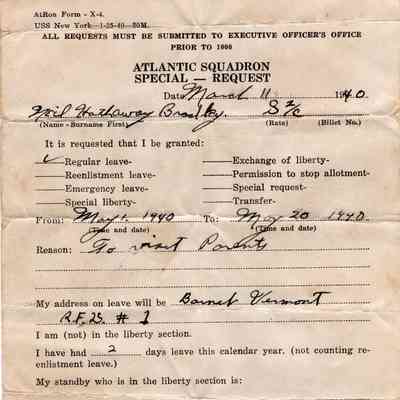 AtRon Form - X-4.
USS New York—1-25-40—20M.
ALL REQUESTS MUST BE SUBMITTED TO EXECUTIVE OFFICER'S OFFICE
PRIOR TO 1000
ATLANTIC SQUADRON
SPECIAL — REQUEST
Date March 11 1940.
Neil Hathaway Bradley. S 2/c
(Name—Surname First) (Rate) (Billet No.)
It is requested that I be granted:
✓ Regular leave- Exchange of liberty-
Reenlistment leave- Permission to stop allotment-
Emergency leave- Special request-
Special liberty- Transfer-
From: May 1. 1940 To: May 20 1940.
(Time and date) (Time and date)
Reason: To visit Parents
My address on leave will be Barnet Vermont
R.F.D. # 1
I am (not) in the liberty section.
I have had 2 days leave this calendar year. (not counting re-
enlistment leave.)
My standby who is in the liberty section is: